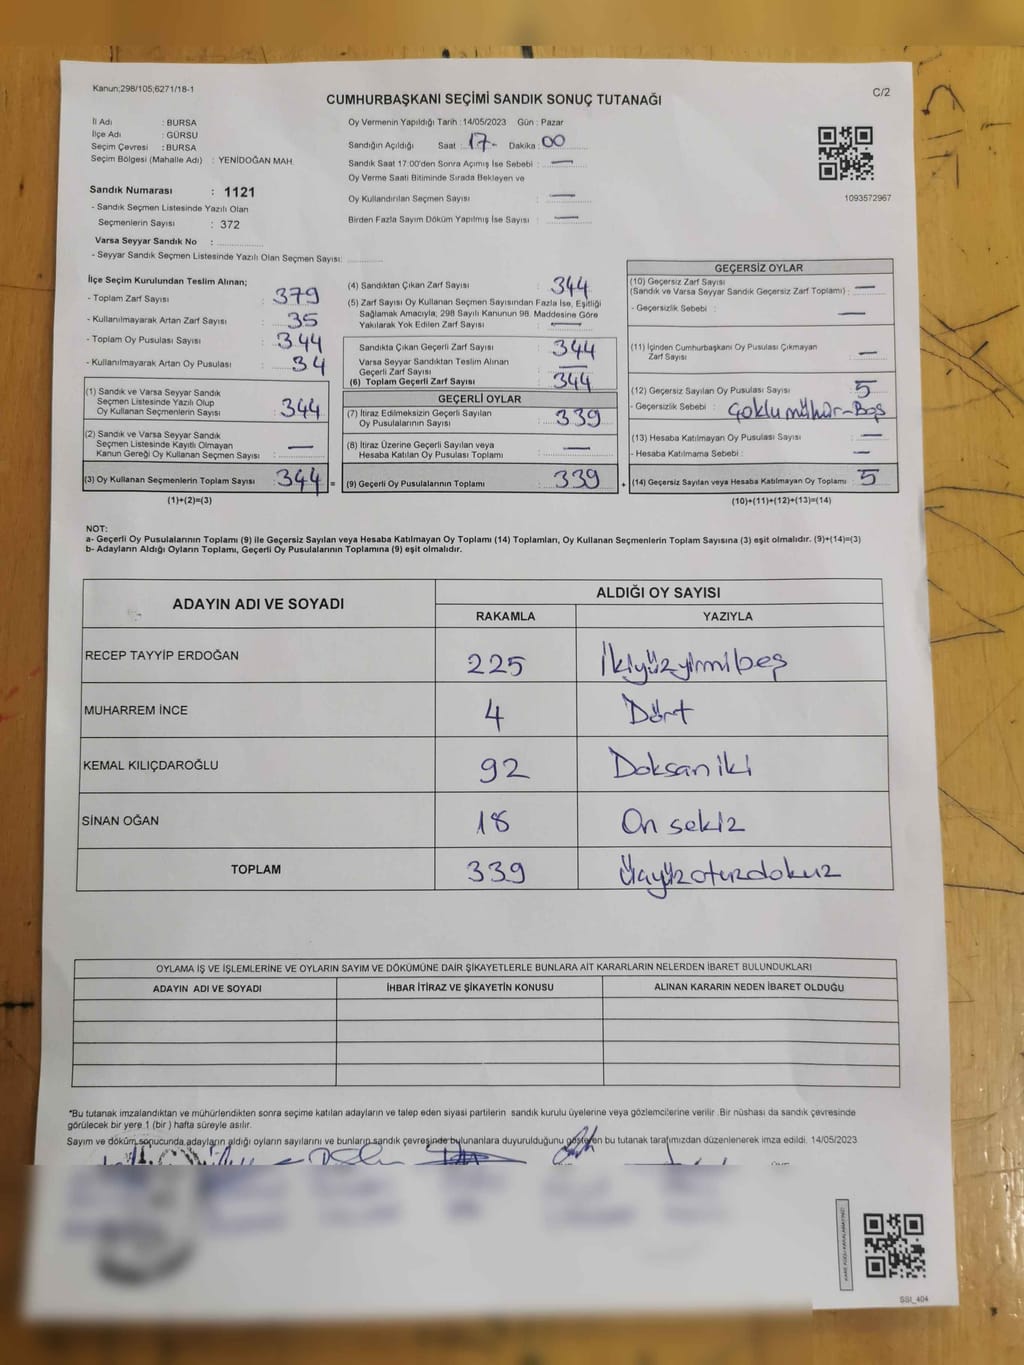 Kanun;298/105;6271/18-1
C/2
CUMHURBAŞKANI SEÇİMİ SANDIK SONUÇ TUTANAĞI
İl Adı : BURSA
İlçe Adı : GÜRSU
Seçim Çevresi : BURSA
Seçim Bölgesi (Mahalle Adı) : YENİDOĞAN MAH.
Sandık Numarası : 1121
- Sandık Seçmen Listesinde Yazılı Olan
Seçmenlerin Sayısı : 372
Varsa Seyyar Sandık No :
- Seyyar Sandık Seçmen Listesinde Yazılı Olan Seçmen Sayısı:
Oy Vermenin Yapıldığı Tarih : 14/05/2023 Gün : Pazar
Sandığın Açıldığı Saat : 17- Dakika : 00
Sandık Saat 17:00'den Sonra Açımış İse Sebebi : —
Oy Verme Saati Bitiminde Sırada Bekleyen ve
Oy Kullandırılan Seçmen Sayısı : —
Birden Fazla Sayım Döküm Yapılmış İse Sayısı : —
1093572967
İlçe Seçim Kurulundan Teslim Alınan;
- Toplam Zarf Sayısı : 379
- Kullanılmayarak Artan Zarf Sayısı : 35
- Toplam Oy Pusulası Sayısı : 344
- Kullanılmayarak Artan Oy Pusulası : 34
(1) Sandık ve Varsa Seyyar Sandık
Seçmen Listesinde Yazılı Olup
Oy Kullanan Seçmenlerin Sayısı : 344
(2) Sandık ve Varsa Seyyar Sandık
Seçmen Listesinde Kayıtlı Olmayan
Kanun Gereği Oy Kullanan Seçmen Sayısı : —
(3) Oy Kullanan Seçmenlerin Toplam Sayısı : 344 =
(1)+(2)=(3)
(4) Sandıktan Çıkan Zarf Sayısı : 344
(5) Zarf Sayısı Oy Kullanan Seçmen Sayısından Fazla İse, Eşitliği
Sağlamak Amacıyla; 298 Sayılı Kanunun 98. Maddesine Göre
Yakılarak Yok Edilen Zarf Sayısı : —
Sandıkta Çıkan Geçerli Zarf Sayısı : 344
Varsa Seyyar Sandıktan Teslim Alınan
Geçerli Zarf Sayısı : —
(6) Toplam Geçerli Zarf Sayısı : 344
GEÇERLİ OYLAR
(7) İtiraz Edilmeksizin Geçerli Sayılan
Oy Pusulalarının Sayısı : 339
(8) İtiraz Üzerine Geçerli Sayılan veya
Hesaba Katılan Oy Pusulası Toplamı : —
(9) Geçerli Oy Pusulalarının Toplamı : 339 +
GEÇERSİZ OYLAR
(10) Geçersiz Zarf Sayısı
(Sandık ve Varsa Seyyar Sandık Geçersiz Zarf Toplamı) : —
- Geçersizlik Sebebi : —
(11) İçinden Cumhurbaşkanı Oy Pusulası Çıkmayan
Zarf Sayısı : —
(12) Geçersiz Sayılan Oy Pusulası Sayısı : 5
- Geçersizlik Sebebi : Çoklu mühür-Boş
(13) Hesaba Katılmayan Oy Pusulası Sayısı : —
- Hesaba Katılmama Sebebi : —
(14) Geçersiz Sayılan veya Hesaba Katılmayan Oy Toplamı : 5
(10)+(11)+(12)+(13)=(14)
NOT:
a- Geçerli Oy Pusulalarının Toplamı (9) ile Geçersiz Sayılan veya Hesaba Katılmayan Oy Toplamı (14) Toplamları, Oy Kullanan Seçmenlerin Toplam Sayısına (3) eşit olmalıdır. (9)+(14)=(3)
b- Adayların Aldığı Oyların Toplamı, Geçerli Oy Pusulalarının Toplamına (9) eşit olmalıdır.
ADAYIN ADI VE SOYADI
ALDIĞI OY SAYISI
RAKAMLA YAZIYLA
RECEP TAYYİP ERDOĞAN 225 İkiyüzyirmibeş
MUHARREM İNCE 4 Dört
KEMAL KILIÇDAROĞLU 92 Doksan iki
SİNAN OĞAN 18 On sekiz
TOPLAM 339 Üçyüzotuzdokuz
OYLAMA İŞ VE İŞLEMLERİNE VE OYLARIN SAYIM VE DÖKÜMÜNE DAİR ŞİKAYETLERLE BUNLARA AİT KARARLARIN NELERDEN İBARET BULUNDUKLARI
ADAYIN ADI VE SOYADI İHBAR İTİRAZ VE ŞİKAYETİN KONUSU ALINAN KARARIN NEDEN İBARET OLDUĞU
*Bu tutanak imzalandıktan ve mühürlendikten sonra seçime katılan adayların ve talep eden siyasi partilerin sandık kurulu üyelerine veya gözlemcilerine verilir. Bir nüshası da sandık çevresinde
görülecek bir yere 1 (bir) hafta süreyle asılır.
Sayım ve döküm sonucunda adayların aldığı oyların sayılarını ve bunların sandık çevresinde bulunanlara duyurulduğunu gösteren bu tutanak tarafımızdan düzenlenerek imza edildi. 14/05/2023
SSI_404